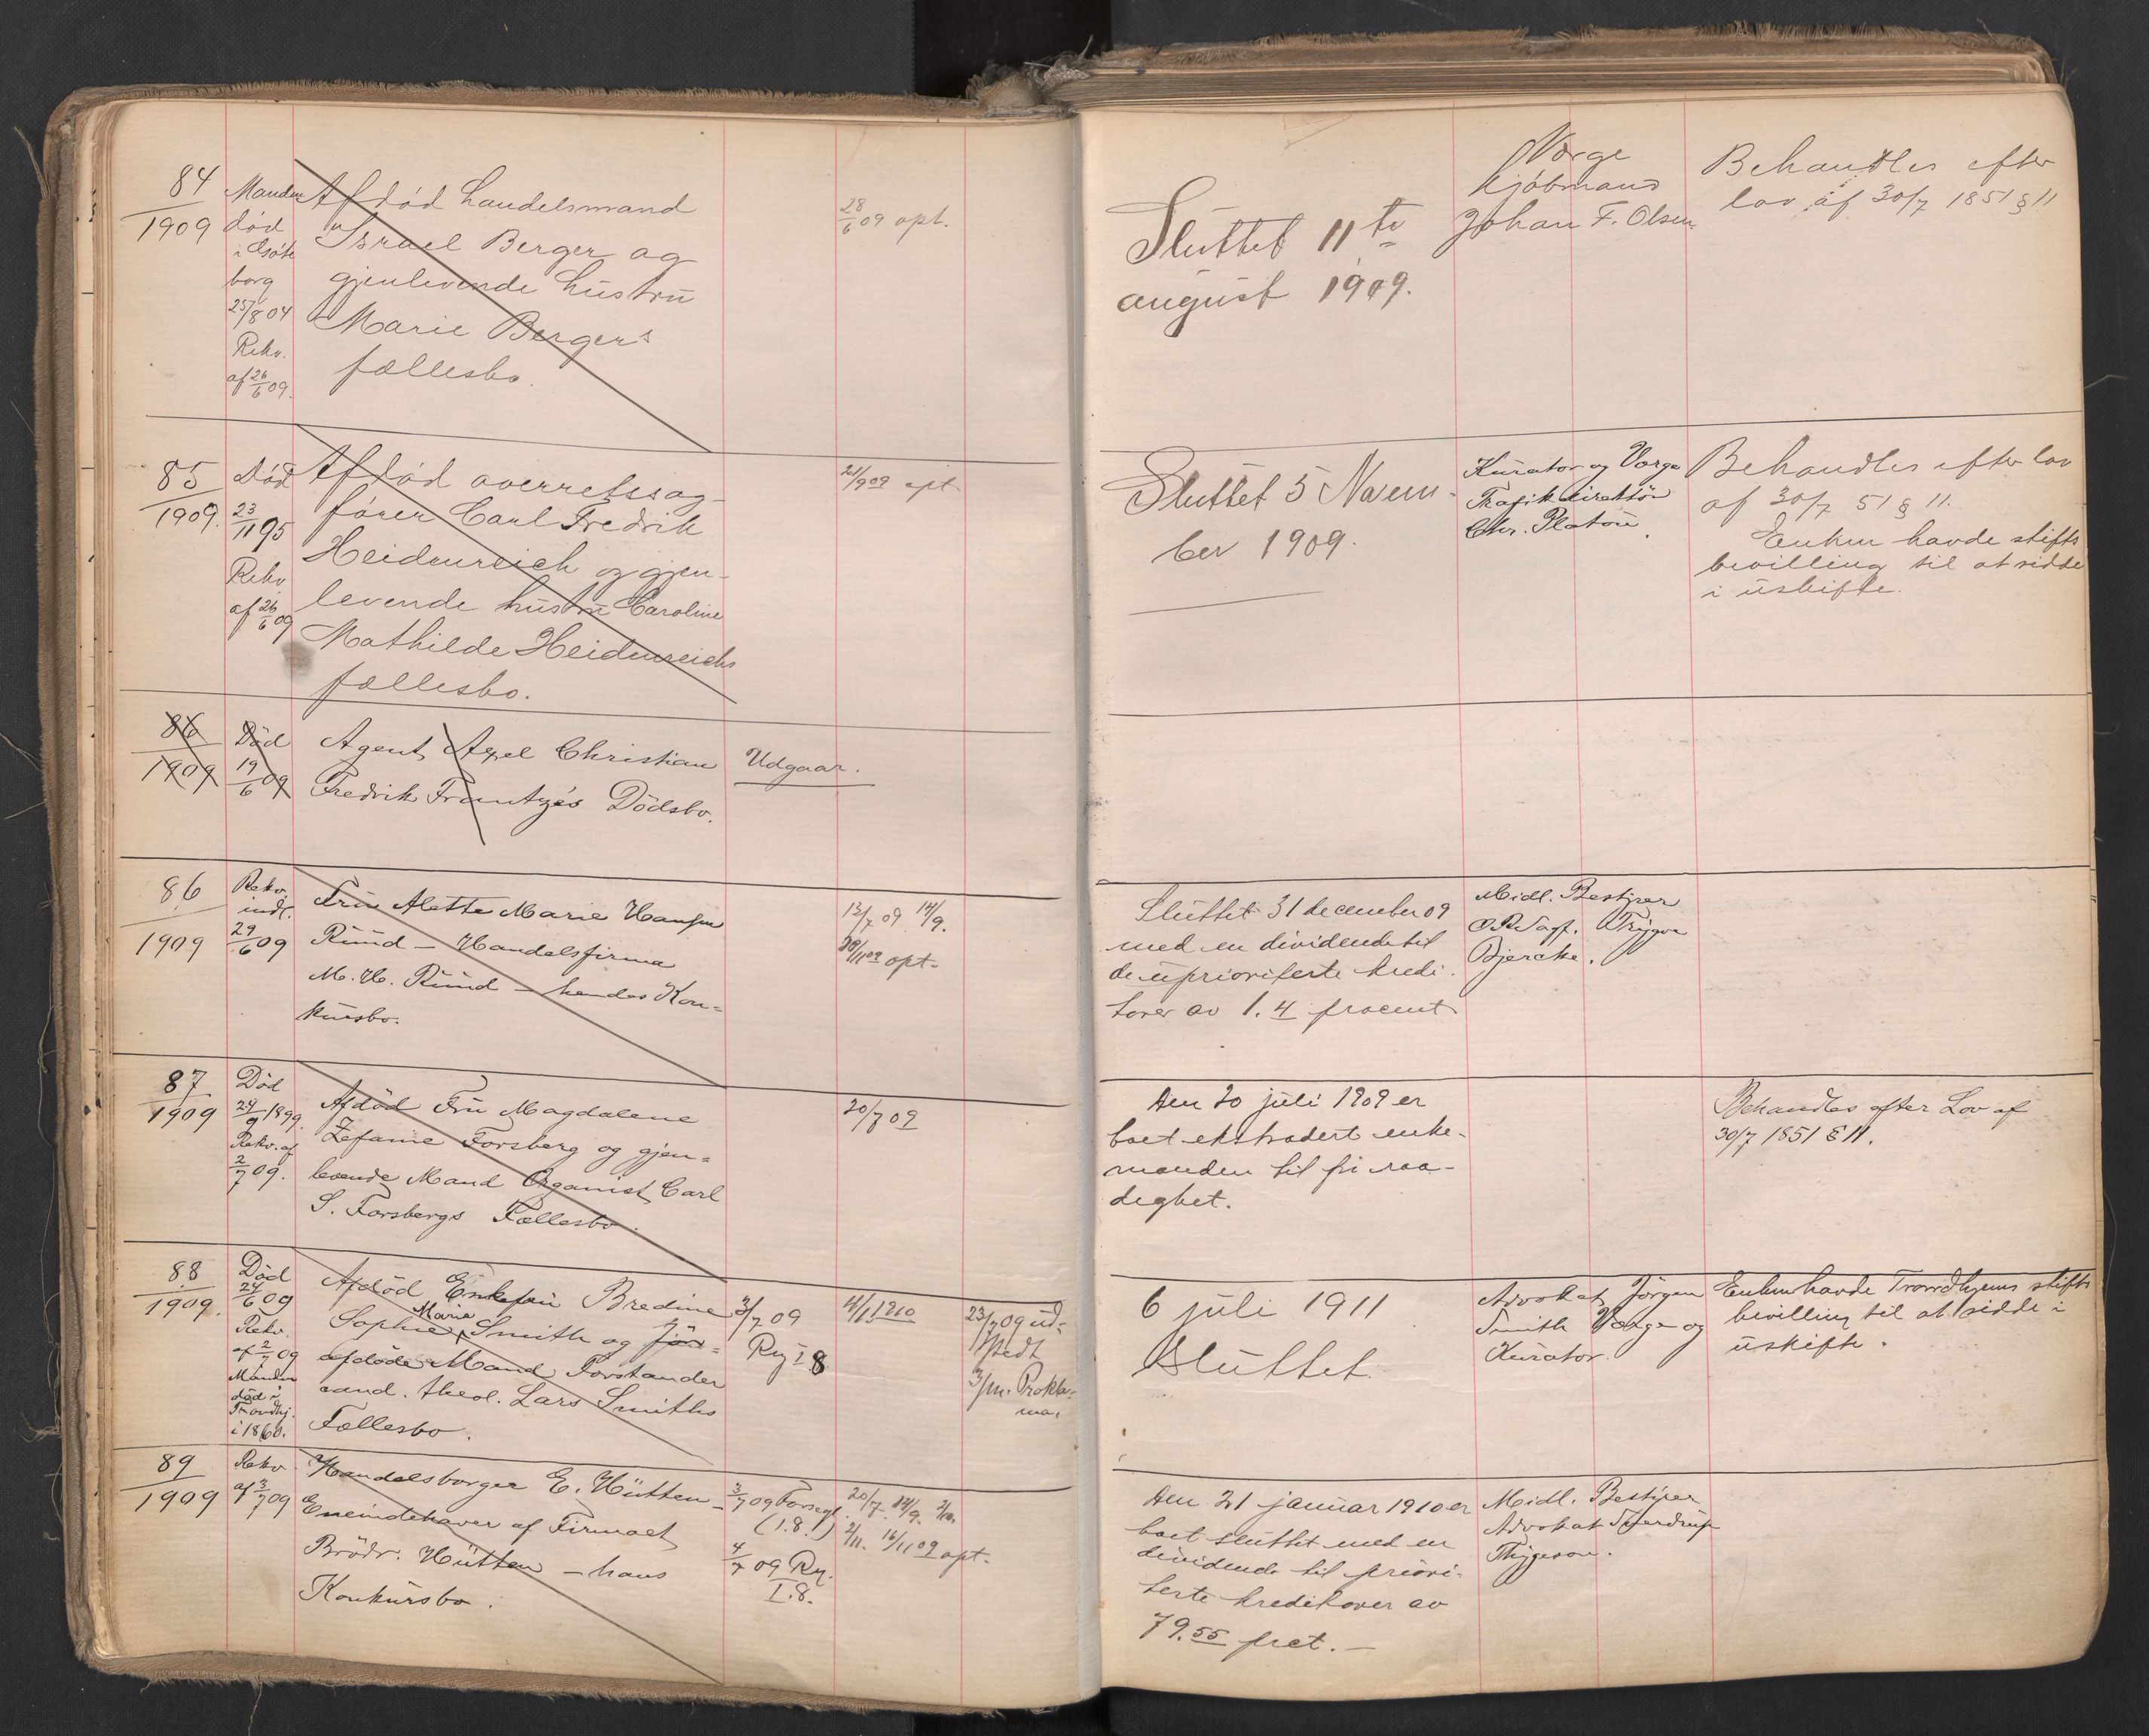 84
1909
Manden
død
i Gøte
borg
25/8 04
Rekv.
af 26/6 09.
Afdød handelsmand
Israel Berger og
gjenlevende hustru
Marie Bergers
fællesbo.
28/6 09 opt.
Sluttet 11te
august 1909.
Værge
kjøbmand
Johan F. Olsen
Behandles efter
lov af 30/7 1851 § 11
85
1909.
Død
23/11 95
Rekv
af 26/6 09
Afdød overretssag-
fører Carl Fredrik
Heidenreich og gjen-
levende hustru Caroline
Mathilde Heidenreichs
fællesbo.
21/9 09 opt.
Sluttet 5 Novem-
ber 1909.
Kurator og Værge
Trafikdirektør
Chr. Platou.
Behandles efter lov
af 30/7 51 § 11.
Enken havde stifts
bevilling til at sidde
i uskifte.
86
1909
Død
19/6 09
Agent Axel Christian
Fredrik Frantzés Dødsbo.
Udgaar.
86
1909
Rekv.
indl.
29/6 09
Fru Alette Marie Hansen
Ruud – Handelsfirma
M. H. Ruud – hendes Kon=
kursbo.
13/7 09 14/9.
20/11 09 opt.
Sluttet 31 december 09
med en dividende til
de uprioriterte kredi
torer av 1.4 procent
Midl. Bestyrer
O.R.sagf. Trygve
Bjercke.
87
1909
Død
24/9 1899.
Rekv. af
2/7 09.
Afdød Fru Magdalene
Zefanie Forsberg og gjen=
levende Mand Organist Carl
S. Forsbergs Fællesbo.
20/7 09
Den 20 juli 1909 er
boet ekstradert enke-
manden til fri raa-
dighet.
Behandles efter Lov af
30/7 1851 § 11.
88
1909.
Død
24/6 09
Rekv.
af 2/7 09
Manden
død i
Trondhj.
i 1860.
Afdød Enkefru Bredine
Marie
Sophie Smith og før=
afdøde Mand Forstander
cand. theol. Lars Smiths
Fællesbo.
3/7 09
Ry I 8
4/1 1910
23/7 09 ud=
stedt
3/m. Prokla=
ma.
6 juli 1911
Sluttet.
Advokat Jørgen
Smith Værge og
Kurator.
Enken havde Trondhjems stifts
bevilling til at sidde i
uskifte.
89
1909
Rekv
af 3/7 09
Handelsborger E. Hütten –
Eneindehaver af Firmaet
Brödr. Hütten – hans
Konkursbo.
3/7 09 Forsegl.
(1.8.)
4/7 09 Ry.
I.8.
20/7. 14/9. 2/10.
2/11. 16/11 09 opt.
Den 21 januar 1910 er
boet sluttet med en
dividende til priori-
terte kreditorer av
79.55 prct. –
Midl. Bestyrer
Advokat Sverdrup
Thygeson.